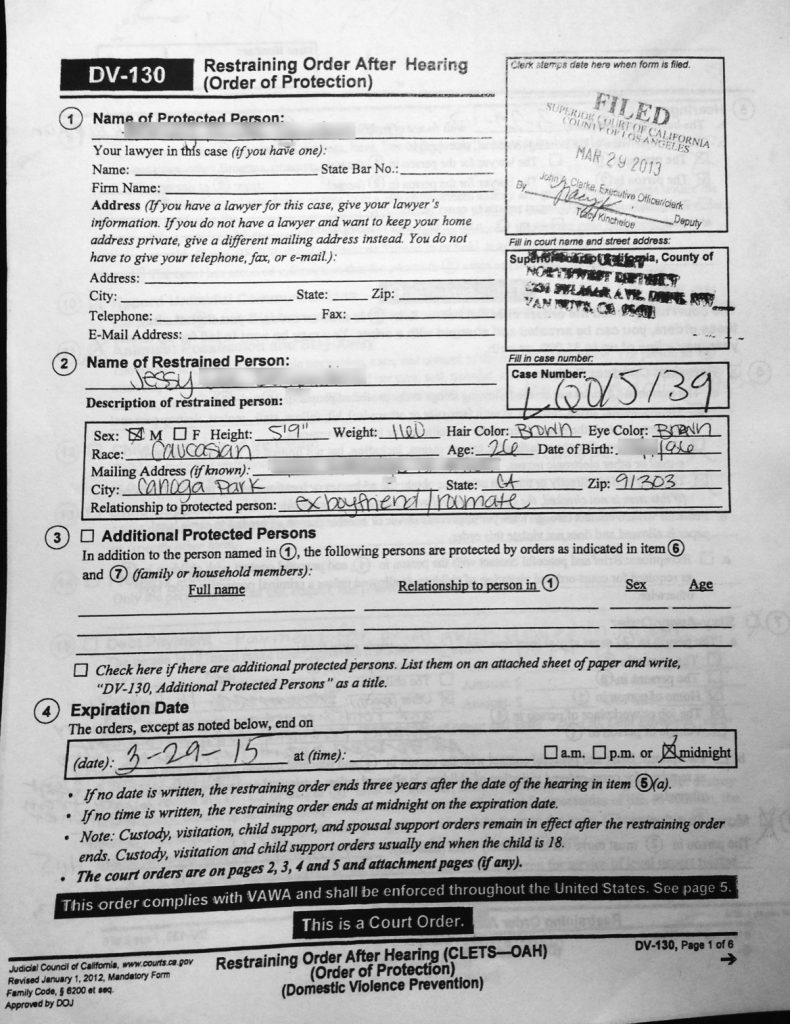 DV-130
Restraining Order After Hearing
(Order of Protection)
Clerk stamps date here when form is filed.
FILED
SUPERIOR COURT OF CALIFORNIA
COUNTY OF LOS ANGELES
MAR 29 2013
John A. Clarke, Executive Officer/clerk
By
Tracy Kincheloe Deputy
1 Name of Protected Person:
Your lawyer in this case (if you have one):
Name: State Bar No.:
Firm Name:
Address (If you have a lawyer for this case, give your lawyer's
information. If you do not have a lawyer and want to keep your home
address private, give a different mailing address instead. You do not
have to give your telephone, fax, or e-mail.):
Address:
City: State: Zip:
Telephone: Fax:
E-Mail Address:
Fill in court name and street address:
Superior Court of California, County of
NORTHWEST DISTRICT
VAN NUYS, CA
Fill in case number:
Case Number:
LQ015139
2 Name of Restrained Person:
Jessy
Description of restrained person:
Sex: ☒ M ☐ F Height: 5'9" Weight: 160 Hair Color: Brown Eye Color: Brown
Race: Caucasian Age: 26 Date of Birth:
Mailing Address (if known):
City: Canoga Park State: CA Zip: 91303
Relationship to protected person: exboyfriend/roomate
3 ☐ Additional Protected Persons
In addition to the person named in 1, the following persons are protected by orders as indicated in item 6
and 7 (family or household members):
Full name Relationship to person in 1 Sex Age
☐ Check here if there are additional protected persons. List them on an attached sheet of paper and write,
"DV-130, Additional Protected Persons" as a title.
4 Expiration Date
The orders, except as noted below, end on
(date): 3-29-15 at (time): ☐ a.m. ☐ p.m. or ☒ midnight
• If no date is written, the restraining order ends three years after the date of the hearing in item 5(a).
• If no time is written, the restraining order ends at midnight on the expiration date.
• Note: Custody, visitation, child support, and spousal support orders remain in effect after the restraining order
ends. Custody, visitation and child support orders usually end when the child is 18.
• The court orders are on pages 2, 3, 4 and 5 and attachment pages (if any).
This order complies with VAWA and shall be enforced throughout the United States. See page 5.
This is a Court Order.
Judicial Council of California, www.courts.ca.gov
Revised January 1, 2012, Mandatory Form
Family Code, § 6200 et seq.
Approved by DOJ
Restraining Order After Hearing (CLETS—OAH)
(Order of Protection)
(Domestic Violence Prevention)
DV-130, Page 1 of 6
→